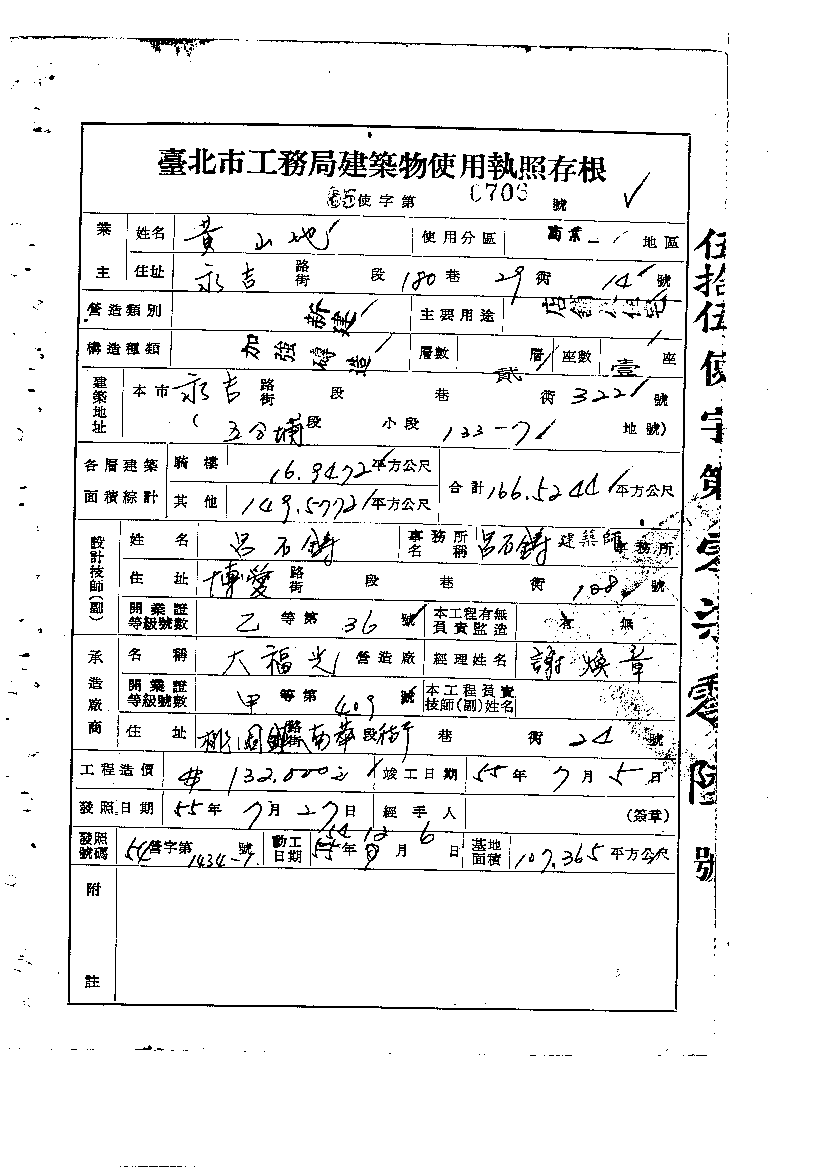 臺北市工務局建築物使用執照存根
55使字第 0706 號
業主 姓名 黃山地 使用分區 商業 地區
住址 永吉 路街 段 180 巷 29 衖 14 號
營造類別 新建 主要用途 店舖住宅
構造種類 加強磚造 層數 貳 層 座數 壹 座
建築地址 本市 永吉 路街 段 巷 衖 322 號
( 五分埔 段 小段 133-7 地號)
各層建築面積綜計 騎樓 16.9472 平方公尺 合計 166.5244 平方公尺
其他 149.5772 平方公尺
設計技師(副) 姓名 呂石鑄 事務所名稱 呂石鑄 建築師事務所
住址 博愛 路街 段 巷 衖 108 號
開業證等級號數 乙 等第 36 號 本工程有無負責監造 有 無
承造廠商 名稱 大福光 營造廠 經理姓名 謝煥章
開業證等級號數 甲 等第 409 號 本工程負責技師(副)姓名
住址 桃園鎮 路街 南華 段 街 巷 衖 24 號
工程造價 132,000元 竣工日期 55年7月5日
發照日期 55年7月27日 經手人 (簽章)
發照號碼 54營字第1434-7號 動工日期 54 12 6 55年 月 日 基地面積 107.365 平方公尺
附註
伍拾伍使字第零柒零陸號